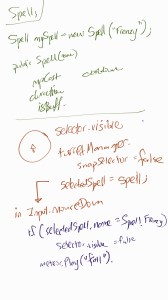 Spells,
Spell mySpell = new Spell("Frenzy");
public Spell(name)
mpCost cooldown
duration
isBuff.
selector.visible,
turretManager.
snapSelector = false
selectedSpell = spell;
in Input.mouseDown
if (selectedSpell.name = Spell.Frenzy)
selector.visible = false
.Play("fall").